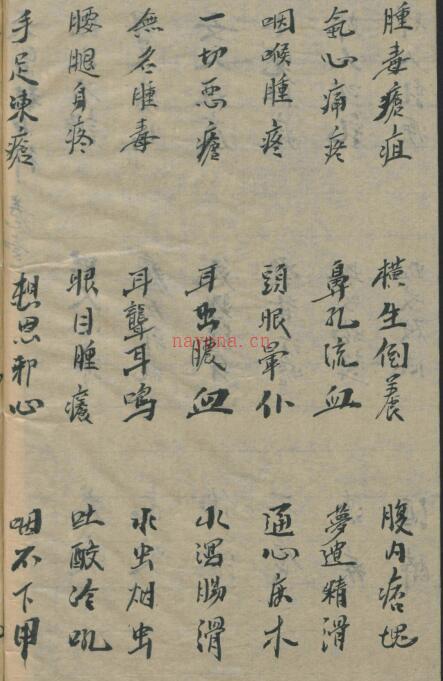 腫毒瘡疽 横生倒養 腹内痞塊
氣心痛疼 鼻孔流血 夢遗精滑
咽喉腫疼 頭眼暈仆 通心木
一切恶瘡 耳出膿血 水瀉腸滑
無名腫毒 耳聾耳鳴 水虫烟虫
腰腿身疼 眼目腫癢 吐酸冷吼
手足凍瘡 想思邪心 咽不下
nayona.cn